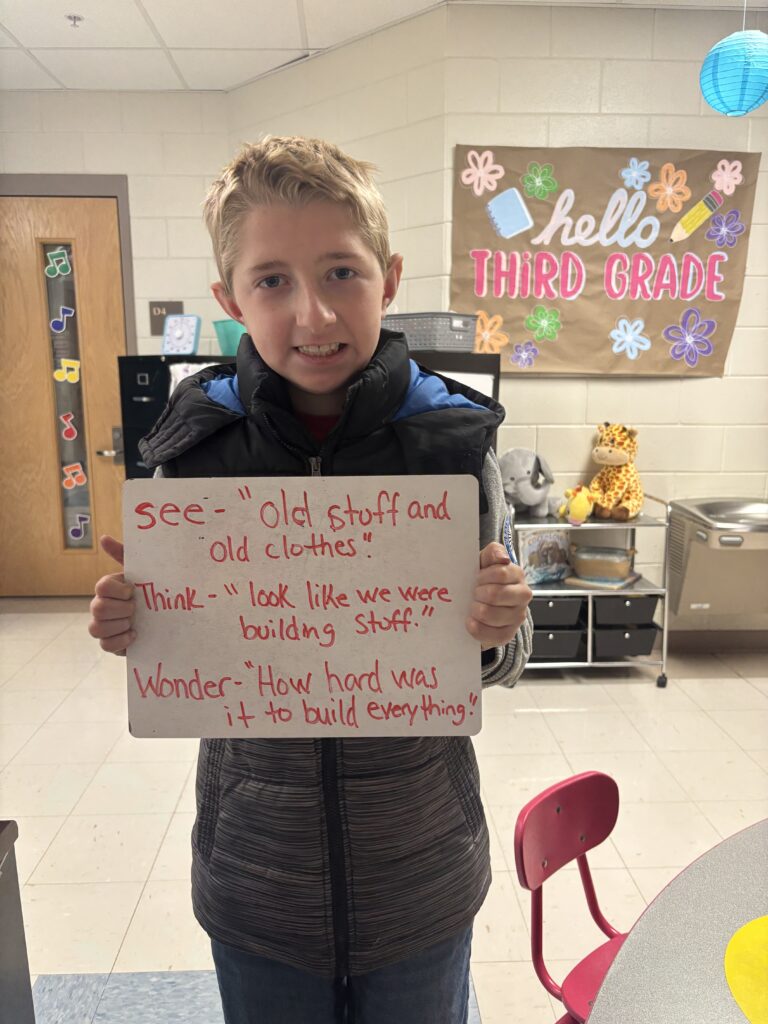 hello
THiRD GRADE
D4
see - "Old stuff and
old clothes".
Think - " look like we were
building stuff."
Wonder - "How hard was
it to build everything".